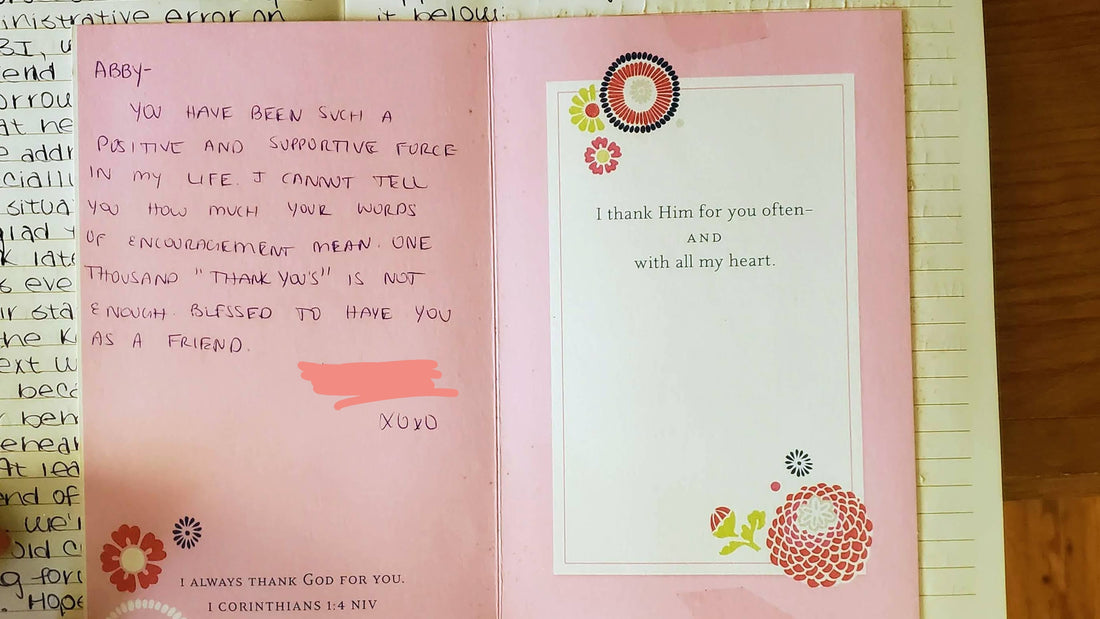 inistrative error on
it below:
BI, u
end
orrou
at ne
e addr
cially
situa
glad y
k late
s eve
ir sta
the K
ext w
beca
bem
ehear
At lea
end of
we'r
old c
g forc
. Hope
ABBY-
YOU HAVE BEEN SUCH A
POSITIVE AND SUPPORTIVE FORCE
IN MY LIFE. I CANNOT TELL
YOU HOW MUCH YOUR WORDS
OF ENCOURAGEMENT MEAN. ONE
THOUSAND "THANK YOU'S" IS NOT
ENOUGH. BLESSED TO HAVE YOU
AS A FRIEND.
XOXO
I ALWAYS THANK GOD FOR YOU.
I CORINTHIANS 1:4 NIV
I thank Him for you often–
AND
with all my heart.